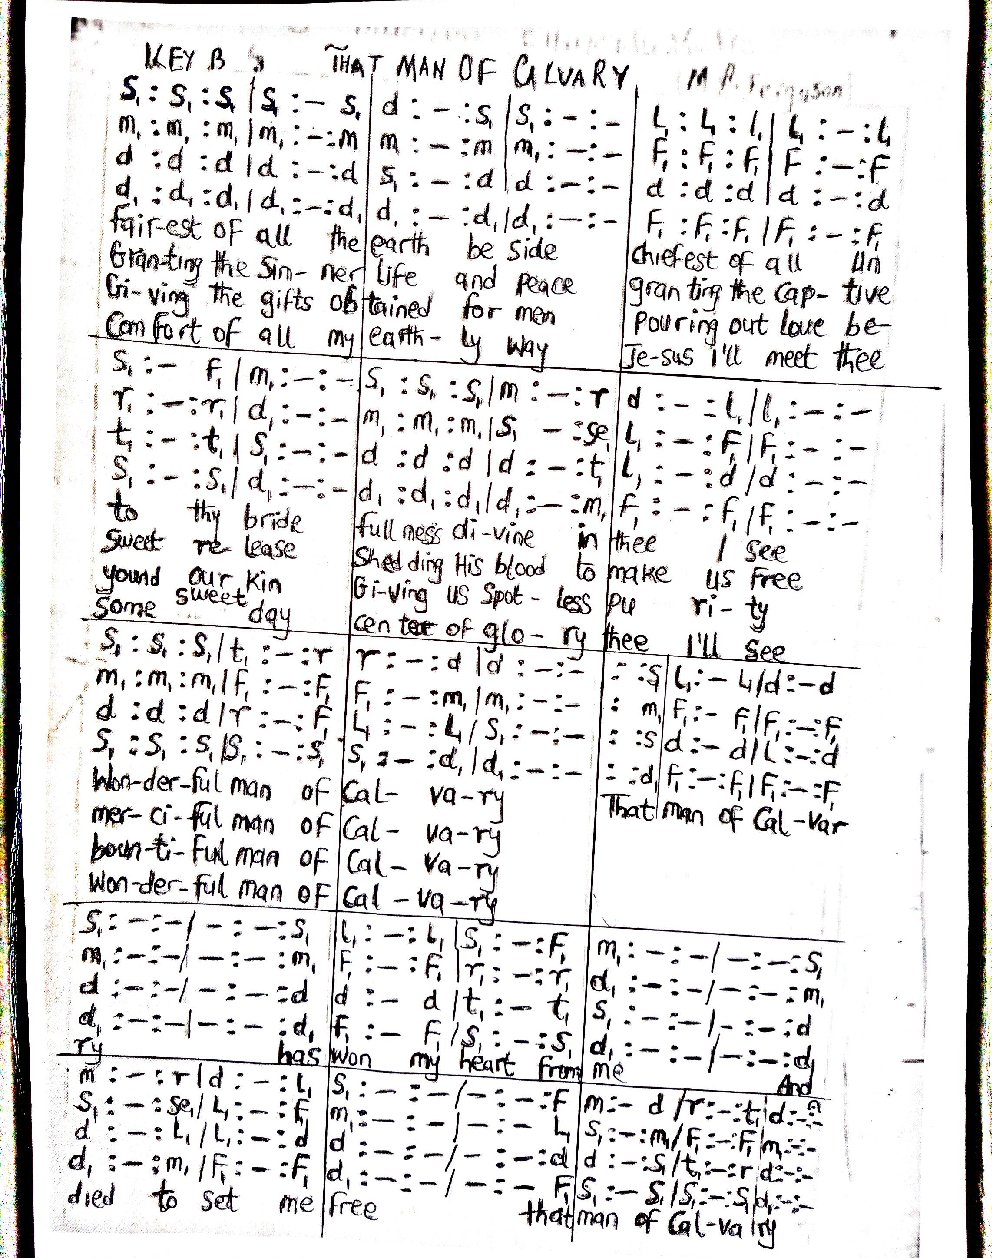 KEY B THAT MAN OF CALVARY M P Ferguson
S₁ : S₁ : S₁ | S₁ : – S₁ | d : – : S₁ | S₁ : – : – | L₁ : L₁ : L₁ | L₁ : – : L₁
m₁ : m₁ : m₁ | m₁ : – : m | m : – : m | m₁ : – : – | F₁ : F₁ : F₁ | F : – : F
d : d : d | d : – : d | S₁ : – : d | d : – : – | d : d : d | d : – : d
d₁ : d₁ : d₁ | d₁ : – : d₁ | d₁ : – : d₁ | d₁ : – : – | F₁ : F₁ : F₁ | F₁ : – : F₁
fair-est of all the earth be side chiefest of all un
Gran-ting the Sin-ner life and peace gran ting the cap-tive
Gi-ving the gifts obtained for men pouring out love be-
Comfort of all my earth-ly way Je-sus I'll meet thee
S₁ : – F₁ | m₁ : – : – | S₁ : S₁ : S₁ | m : – : r | d : – : L₁ | L₁ : – : –
r₁ : – : r₁ | d₁ : – : – | m₁ : m₁ : m₁ | S₁ – : se₁ | L₁ : – : F | F₁ : – : –
t₁ : – : t₁ | S₁ : – : – | d : d : d | d : – : t₁ | L₁ : – : d | d : – : –
S₁ : – : S₁ | d₁ : – : – | d₁ : d₁ : d₁ | d₁ : – : m₁ | F₁ : – : F₁ | F₁ : – : –
to thy bride full ness di-vine in thee I see
Sweet re lease Shed ding His blood to make us free
yound our kin Gi-ving us Spot-less pu ri-ty
Some sweet day center of glo-ry thee I'll see
S₁ : S₁ : S₁ | t₁ : – : r | r : – : d | d : – : – | : : S₁ | L₁ : – L₁ | d : – d
m₁ : m₁ : m₁ | F₁ : – : F₁ | F₁ : – : m₁ | m₁ : – : – | : m₁ | F₁ : – F₁ | F₁ : – : F₁
d : d : d | r : – : F | L₁ : – : L₁ | S₁ : – : – | : : S | d : – d | L : – : d
S₁ : S₁ : S₁ | S₁ : – : S₁ | S₁ : – : d₁ | d₁ : – : – | : : d₁ | F₁ : – : F₁ | F₁ : – : F₁
Won-der-ful man of Cal- va-ry That man of Cal-var
mer-ci-ful man of Cal- va-ry
boun-ti-ful man of Cal- va-ry
Won-der-ful man of Cal-va-ry
S₁ : – : – | – : – : S₁ | L₁ : – : L₁ | S₁ : – : F₁ | m₁ : – : – | – : – : S₁
m₁ : – : – | – : – : m₁ | F₁ : – : F₁ | r₁ : – : r₁ | d₁ : – : – | – : – : m₁
d : – : – | – : – : d | d : – d | t₁ : – t₁ | S₁ : – : – | – : – : d
d₁ : – : – | – : – : d₁ | F₁ : – F₁ | S₁ : – : S₁ | d₁ : – : – | – : – : d₁
ry has won my heart from me And
m : – : r | d : – : L₁ | S₁ : – : – | – : – : F | m : – d | r : – : t₁ | d : – : –
S₁ : – : se₁ | L₁ : – : F | m₁ : – : – | – : – : L₁ | S₁ : – : m₁ | F₁ : – : F₁ | m₁ : – : –
d : – : L₁ | L₁ : – : d | d : – : – | – : – : d | d : – : S₁ | t₁ : – : r | d : – : –
d₁ : – : m₁ | F₁ : – : F₁ | d₁ : – : – | – : – F₁ | S₁ : – S₁ | S₁ : – : S₁ | d₁ : – : –
died to set me free that man of Cal-va ry